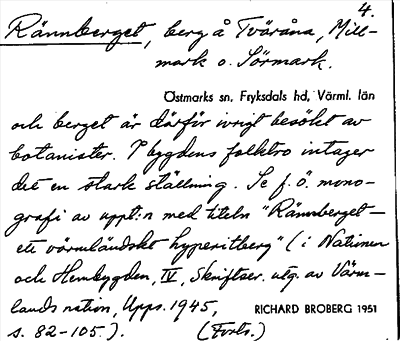 4.
Rännberget, berg å Tväråna, Mill-
mark o. Sörmark.
Östmarks sn, Fryksdals hd, Värml. län
och berget är därför ivrigt besökt av
botanister. I bygdens folktro intager
det en stark ställning. Se f.ö. mono-
grafi av uppt:n med titeln "Rännberget –
ett värmländskt hyperitberg" (i Naturen
och Hembygden, IV, Skriftser. utg. av Värm-
lands nation, Upps. 1945,
RICHARD BROBERG 1951
s. 82-105.). (Forts.)